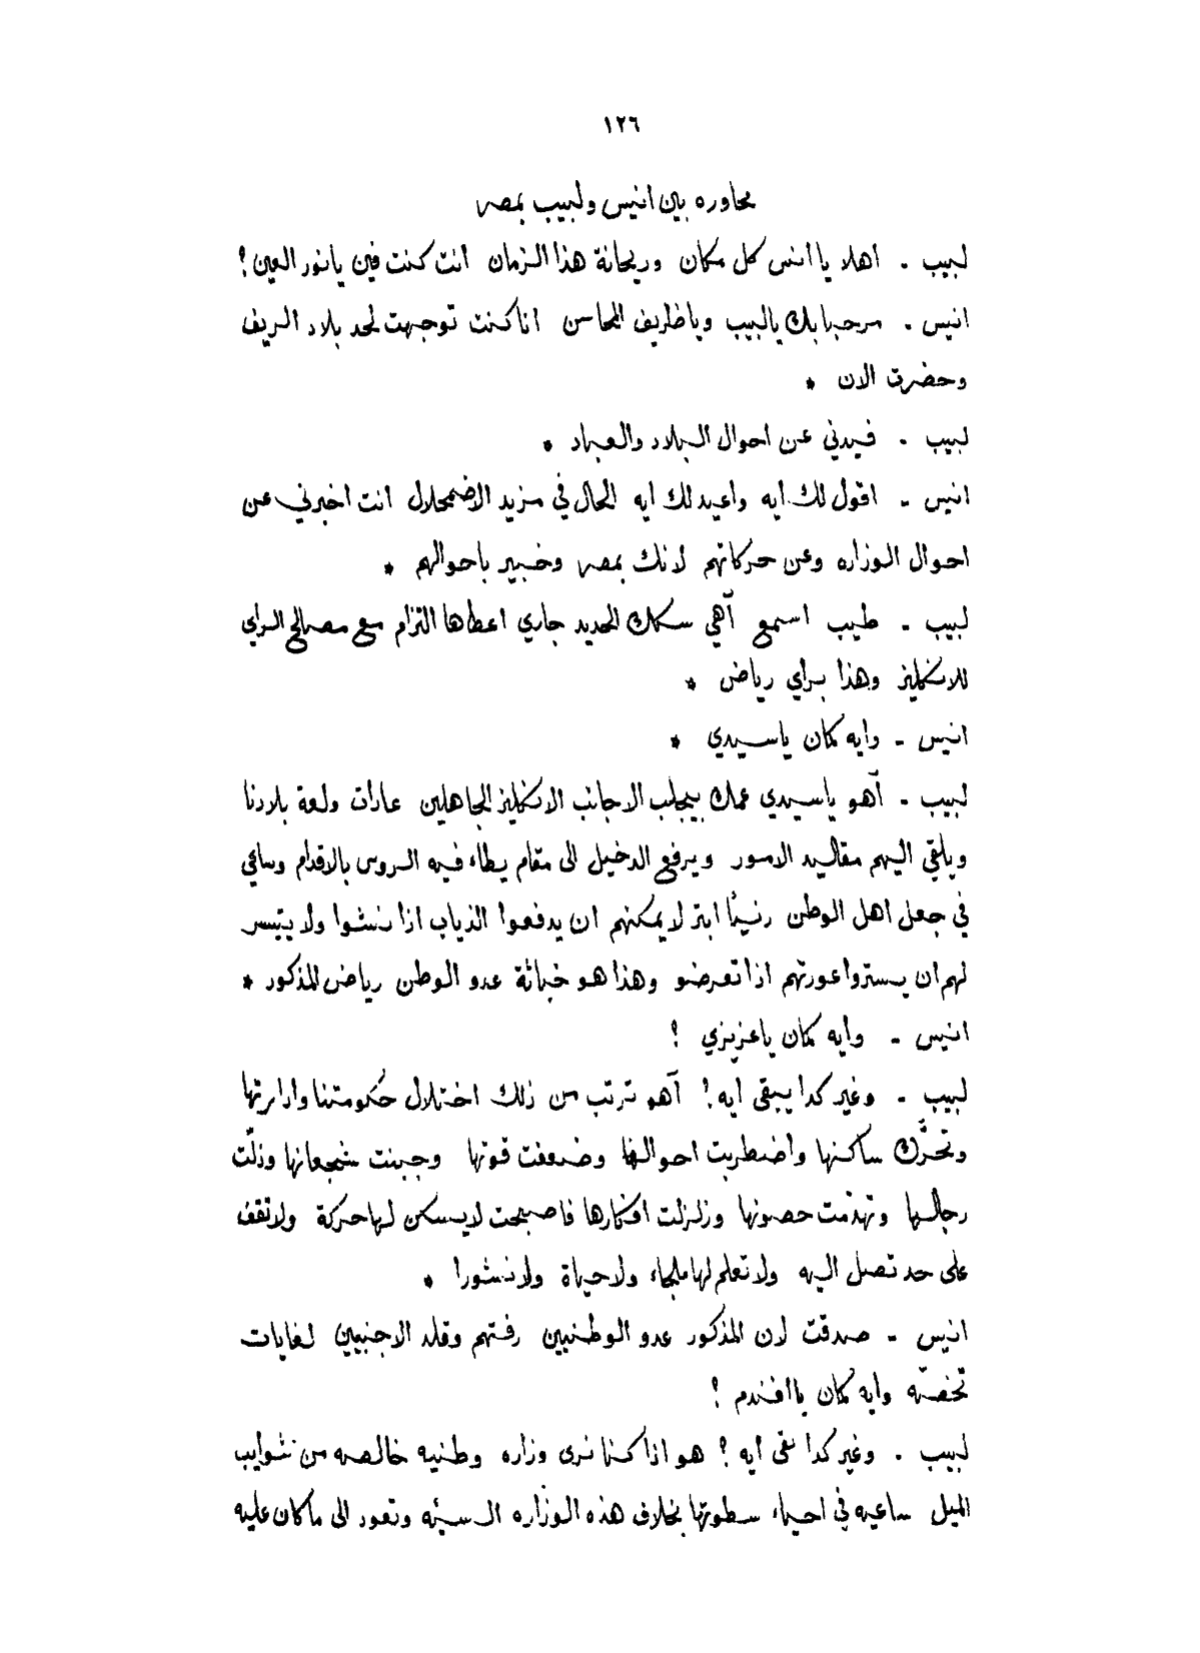 ١٢٦
محاوره بين انيس ولبيب بمصر
لبيب - اهلا يا انس كل مكان وريحانة هذا الزمان انت كنت فين يا نور العين ؟
انيس - مرحبا بك يالبيب ويا ظريف المحاسن انا كنت توجهت لحد بلاد الريف
وحضرت الان *
لبيب - فيدني عن احوال البلاد والعباد *
انيس - اقول لك ايه واعيد لك ايه الحال في مزيد الاضمحلال انت اخبرني عن
احوال الوزاره وعن حركاتهم لانك بمصر وخبير باحوالهم *
لبيب - طيب اسمع آهي سكك الحديد جاري اعطاها التزام مع مصالح الراي
للانكليز وهذا براي رياض *
انيس - وايه كمان ياسيدي *
لبيب - آهو ياسيدي عمك بيجلب الاجانب الانكليز الجاهلين عادات ولغة بلادنا
ويلقي اليهم مقاليد الامور ويرفع الدخيل الى مقام يطاء فيه الروس بالاقدام وساعي
في جعل اهل الوطن ابتر لا يمكنهم ان يدفعوا الذياب اذا نشوا ولا يتيسر
لهم ان يستروا عورتهم اذا تعرضو وهذا هو خباثة عدو الوطن رياض المذكور *
انيس - وايه كمان ياعزيزي ؟
لبيب - وغير كدا يبقى ايه ! آهو ترتب من ذلك اختلال حكومتنا وادارتها
وتحرَّك ساكنها واضطربت احوالها وضعفت قوتها وجبنت شجعانها وذلّت
رجالها وتهدّمت حصونها وزلزلت افكارها فاصبحت لا يسكن لها حركة ولا تقف
على حد تصل اليه ولا تعلم لها ملجاء ولا حياة ولا نشورا *
انيس - صدقت لان المذكور عدو الوطنيين رفتهم وقلد الاجنبيين لغايات
تخصّه وايه كمان يا افندم ؟
لبيب - وغير كدا بقى ايه ؟ هو اذا كنا نرى وزاره وطنيه خالصه من شوايب
الميل ساعيه في احياء سطوتها بخلاف هذه الوزاره السيئه ونعود الى ما كان عليه